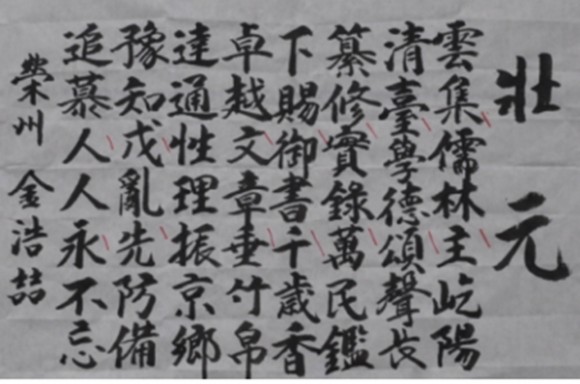 壯元
雲集儒林主屹陽
清臺學德頌聲長
纂修實錄萬民鑑
下賜御書千歲香
卓越文章垂竹帛
達通性理振京鄉
豫知戊亂先防備
追慕人人永不忘
榮州 金浩喆